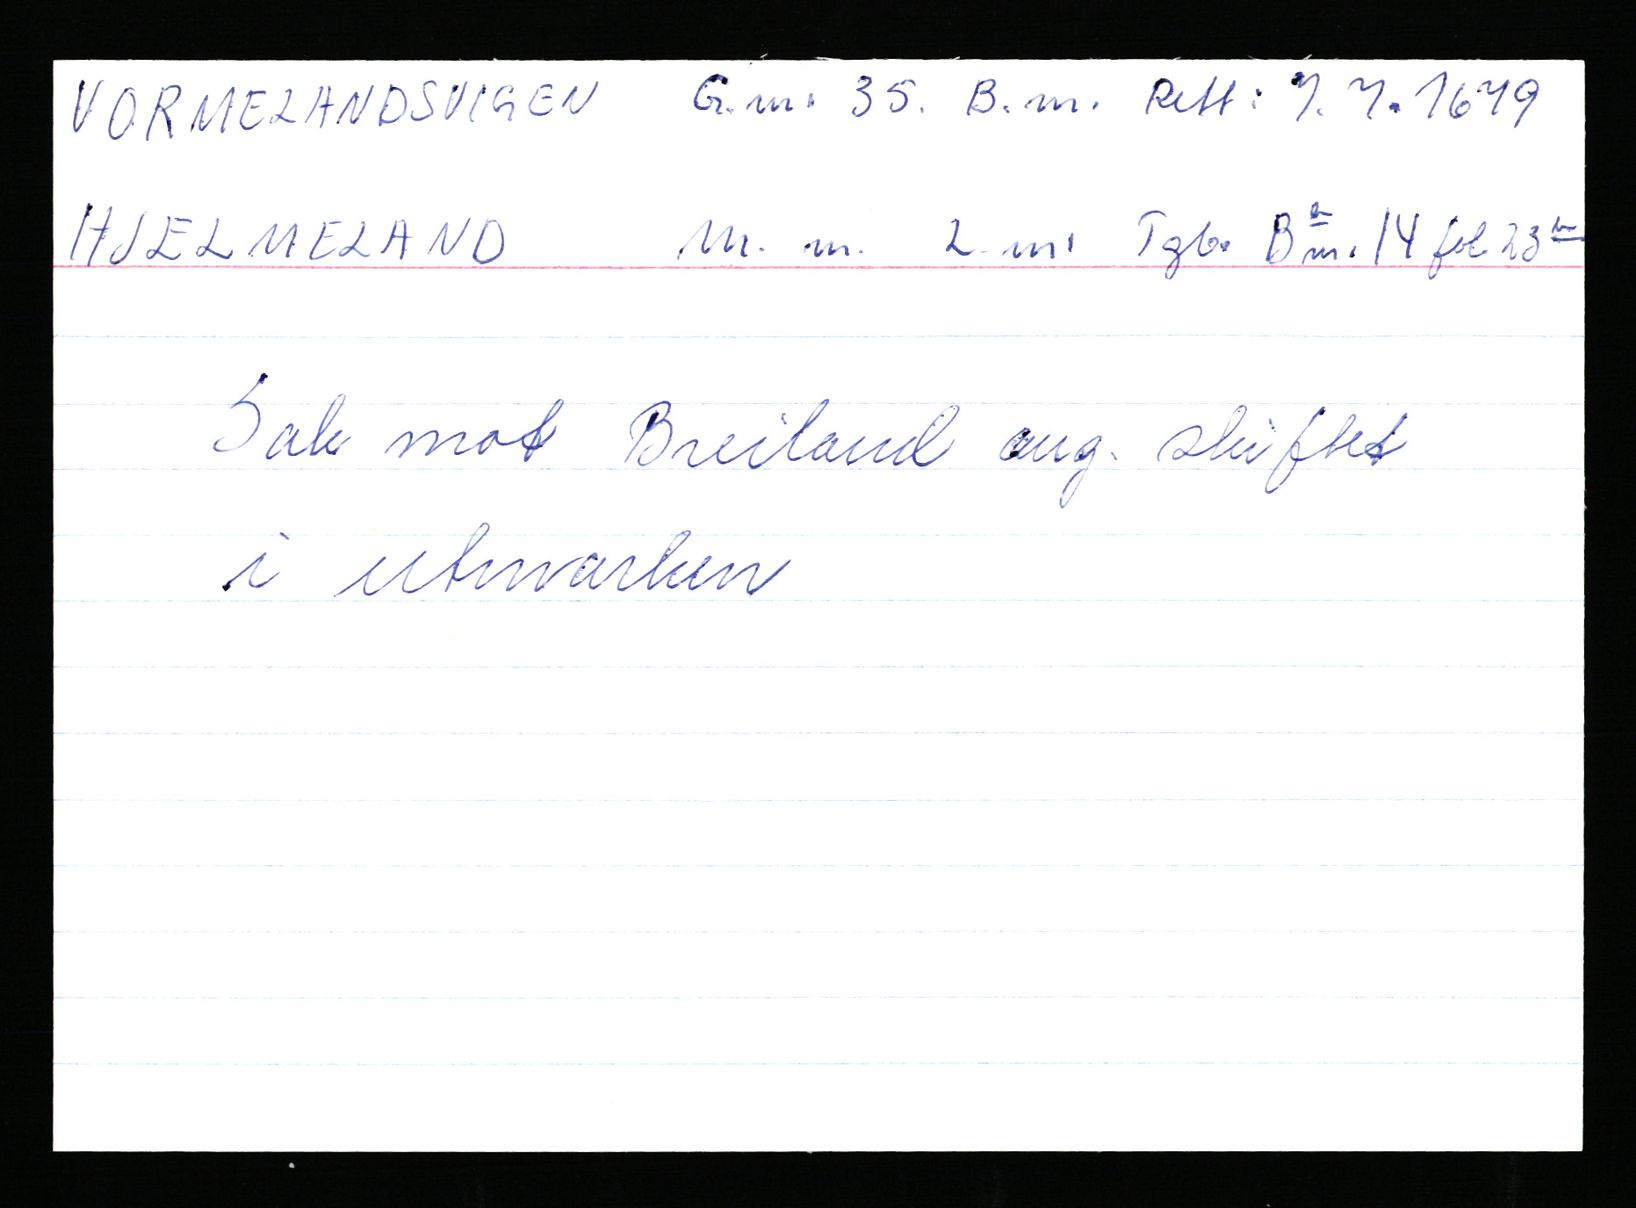 VORMELANDSVIGEN G.nr. 35. B.nr. Rett: 7. 7. 1679
HJELMELAND M. nr. L. nr. Tgb. B nr. 14 fol 23
Sak mot Breiland ang. skiftet
i utmarken